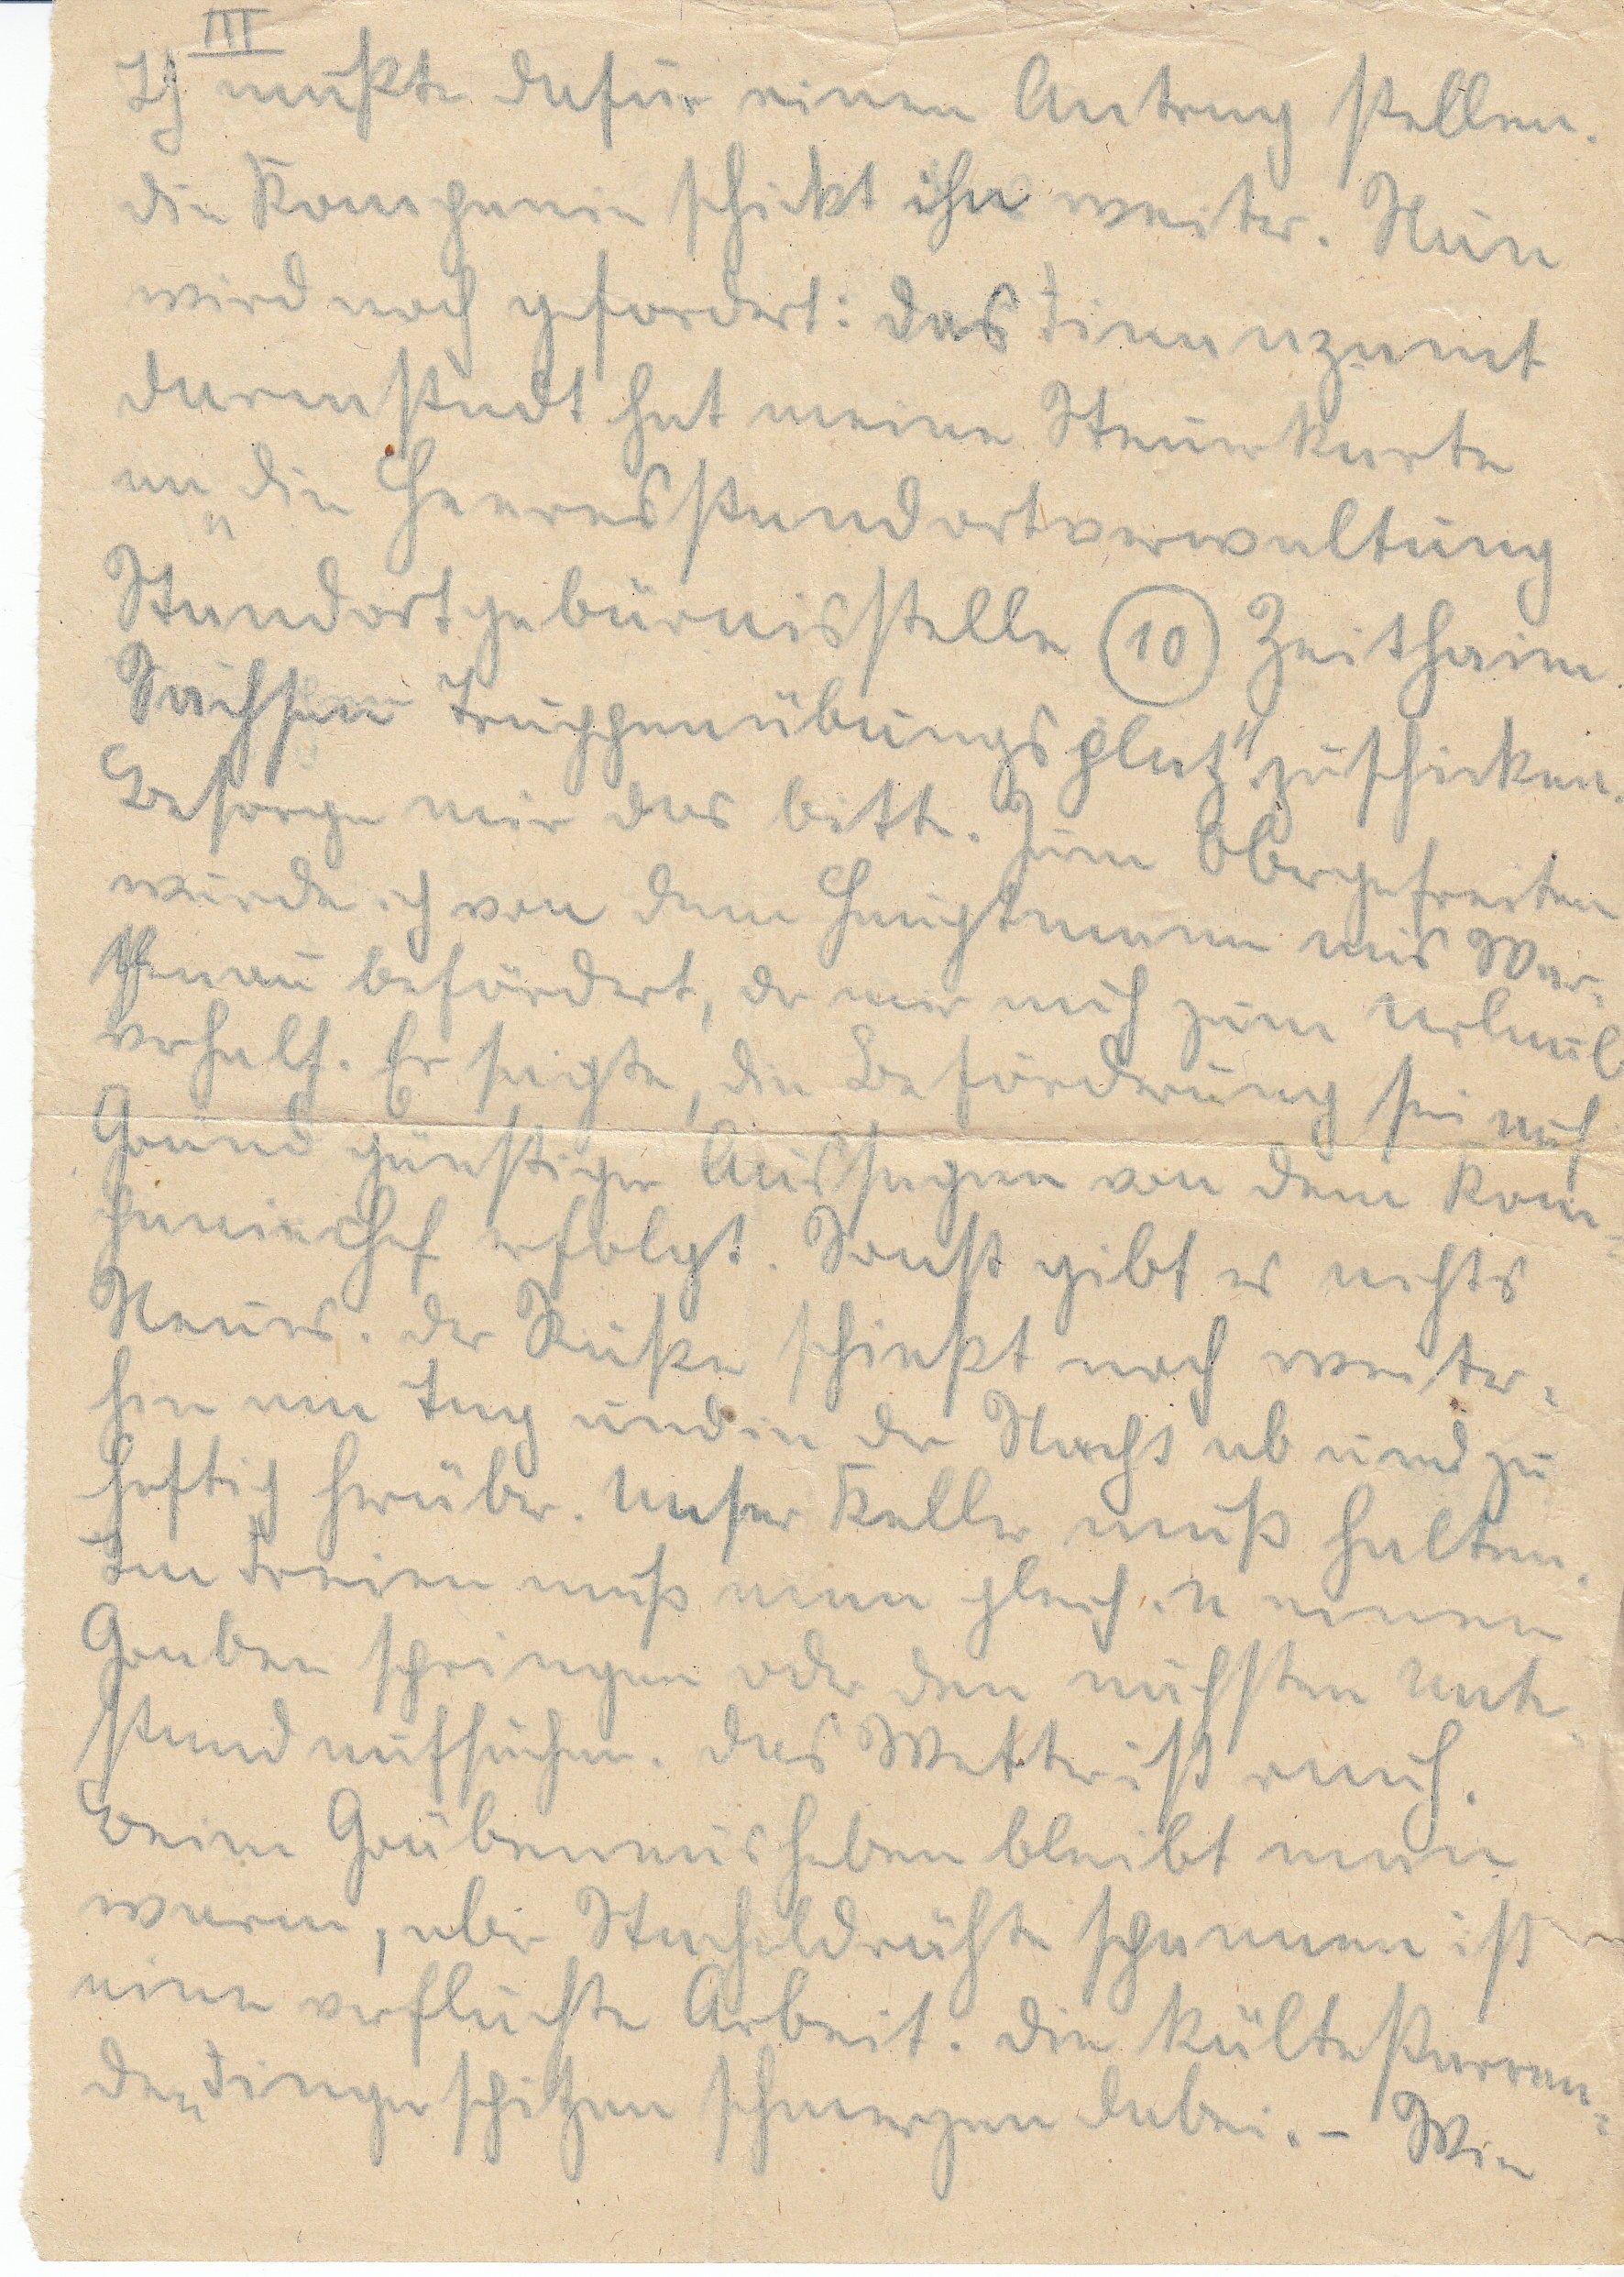 III
Ich mußte dafür einen Antrag stellen.
die Kompanie schickt ihn weiter. Nun
wird noch gefordert: das Finanzamt
darmstadt hat meine Steuerkarte
an „die Heeresstandortverwaltung
Standortgebürnisstelle (10) Zeithain
Sachsen Truppenübungsplatz" zuschicken.
Besorge mir das bitte. Zum Obergefreiten
wurde ich von dem Hauptmann aus War-
schau befördert, der mir auch zum Urlaub
verhalf. Er sagte, die Beförderung sei auf
Grund günstiger Aussagen von dem Kom-
paniechef erfolgt. Sonst gibt es nichts
Neues. der Russe schießt noch weiter-
hin am Tag und in der Nacht ab und zu
heftig herüber. Unser Keller muß halten.
Im Freien muß man gleich in einen
Graben springen oder den nächsten Unter-
stand aufsuchen. das Wetter ist rauh.
Beim Gräbenausheben bleibt man
warm, aber Stacheldrähte spannen ist
eine verfluchte Arbeit. die kältestarren-
den Fingerspitzen schmerzen dabei. – Wie